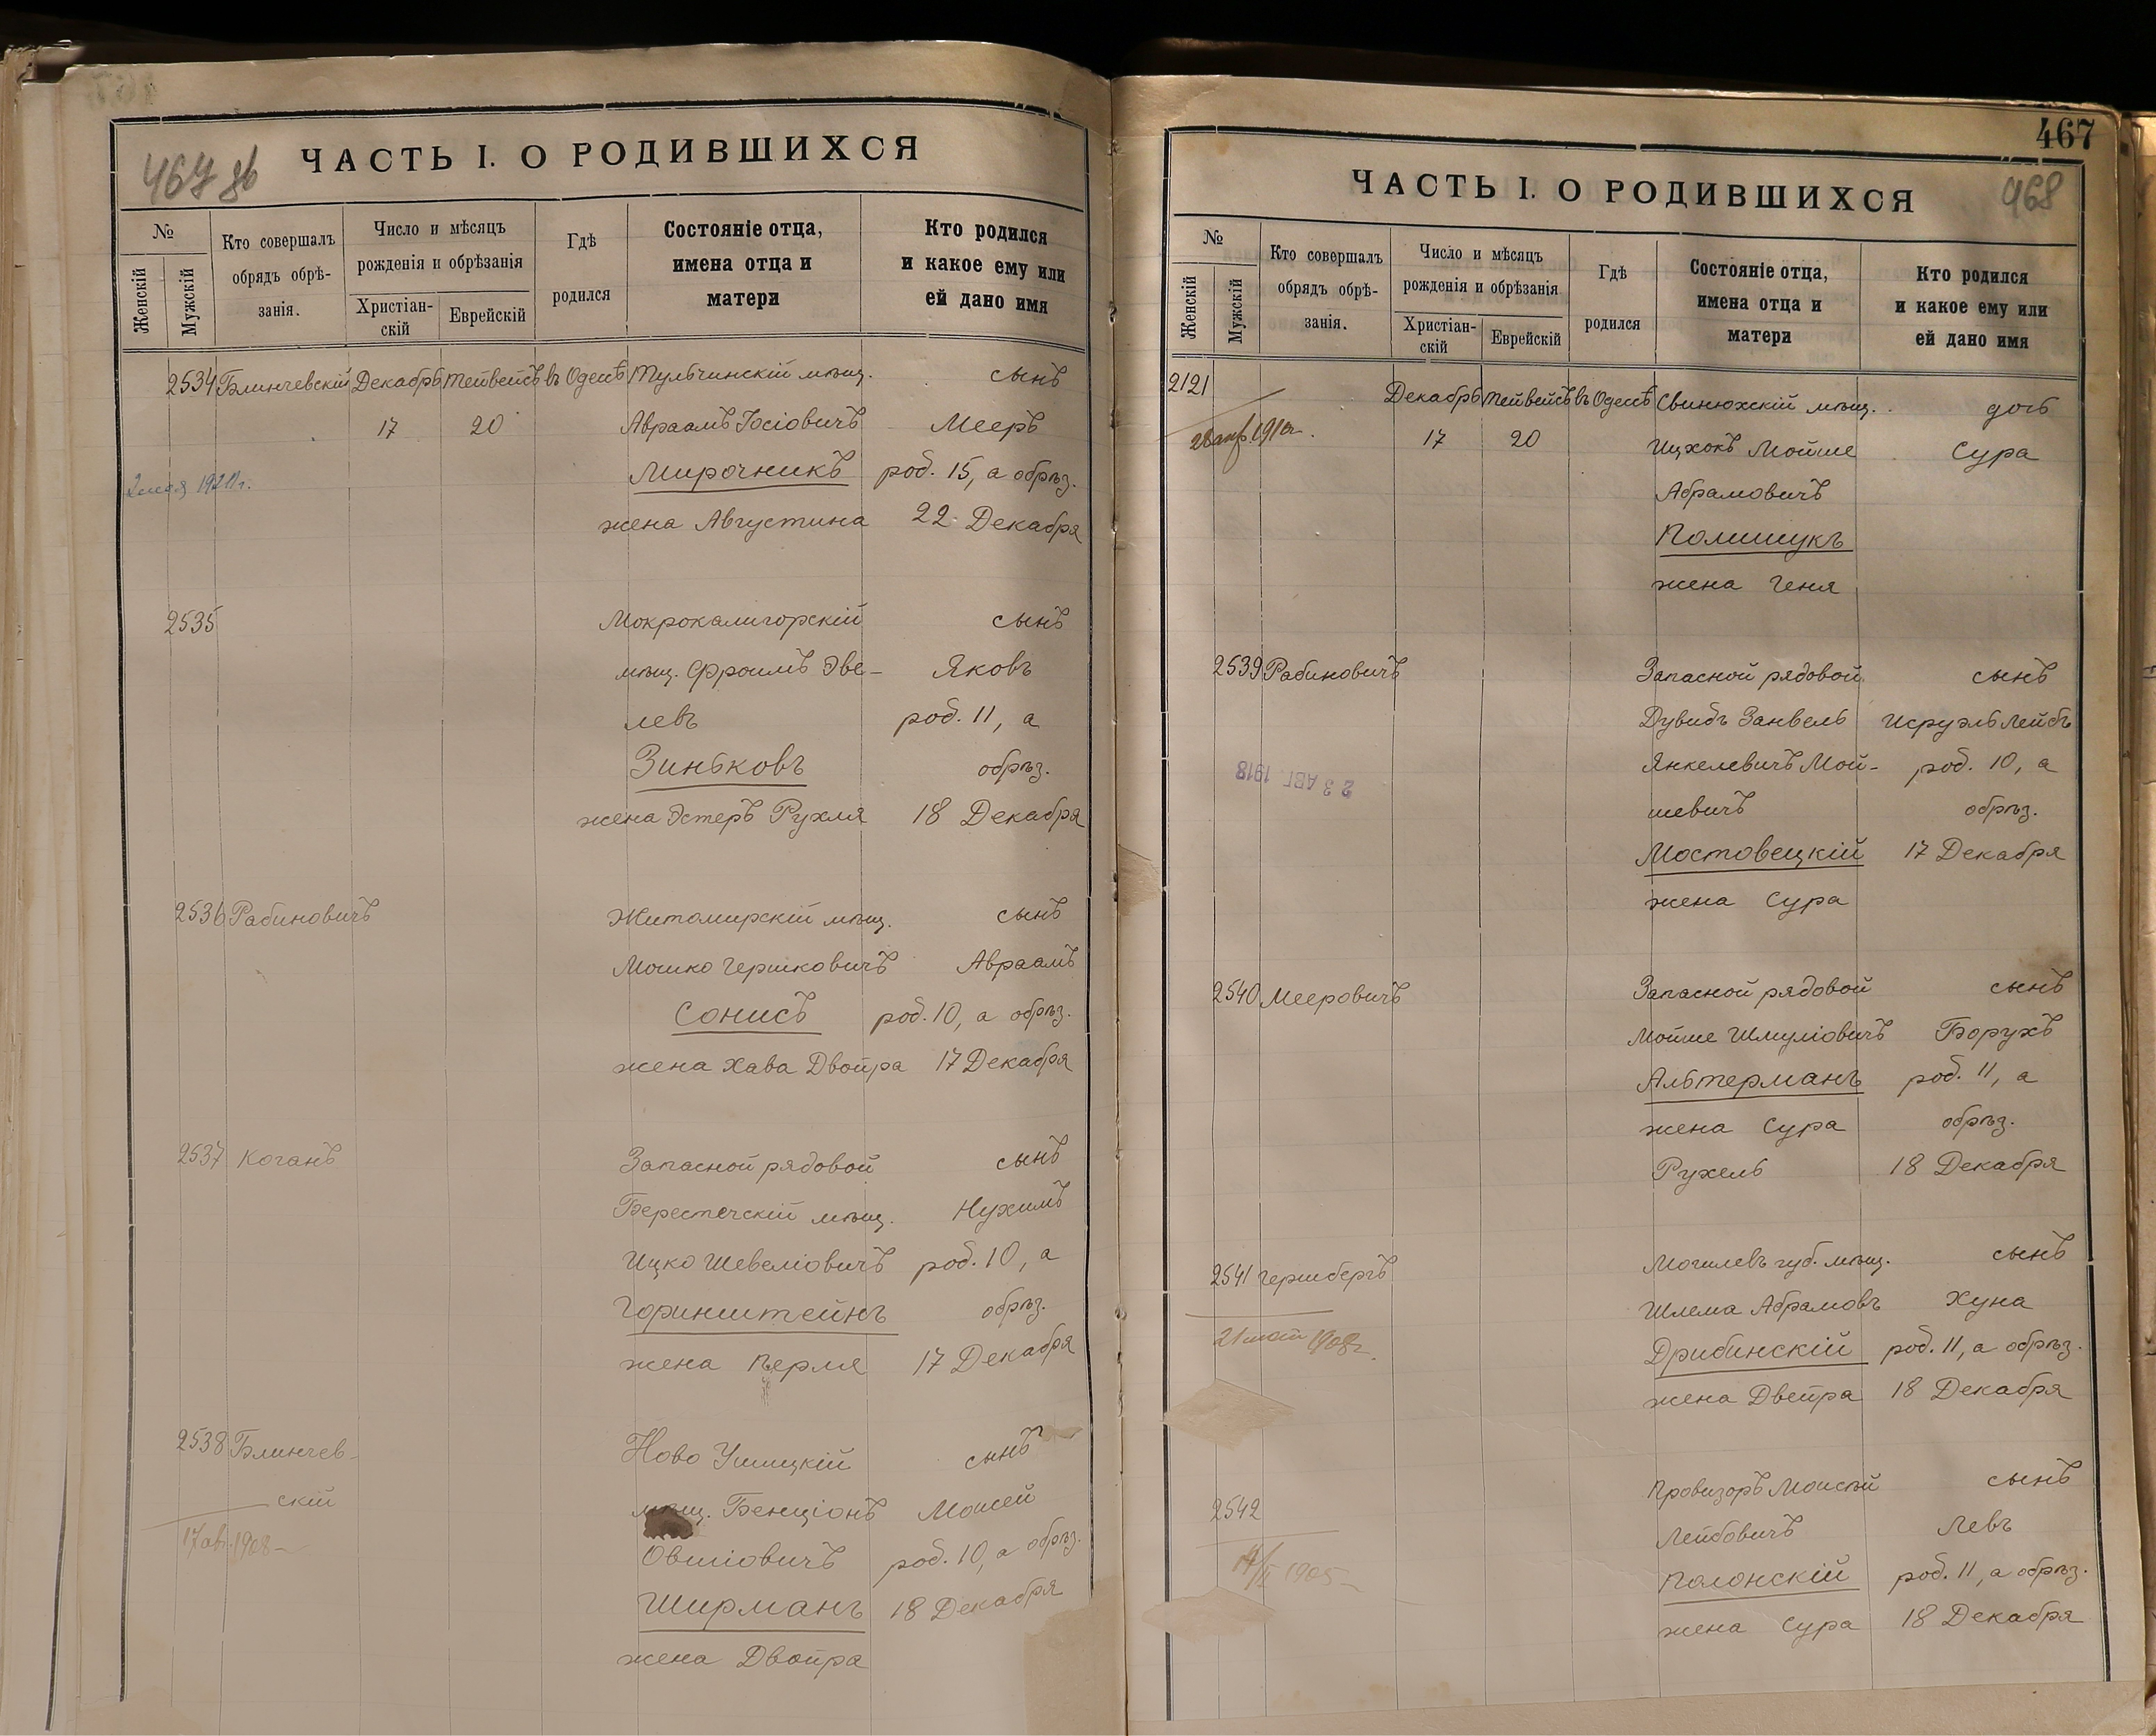 467 об
ЧАСТЬ I. О РОДИВШИХСЯ
№
Женскій
Мужскій
Кто совершалъ
обрядъ обрѣ-
занія.
Число и мѣсяцъ
рожденія и обрѣзанія
Христіан-
скій
Еврейскій
Гдѣ
родился
Состояніе отца,
имена отца и
матери
Кто родился
и какое ему или
ей дано имя
2534 Блинчевскій Декабрь Тейвейсъ въ Одессѣ Тульчинскій мѣщ. сынъ
17 20 Авраамъ Іосіовичъ Мееръ
Мирочникъ род. 15, а обрѣз.
2 мая 1921 г.
жена Августина 22 Декабря
2535 Мокрокалигорскій сынъ
мѣщ. Фроимъ Эве- Яковъ
левъ род. 11, а
Зиньковъ обрѣз.
жена Эстеръ Рухля 18 Декабря
2536 Рабиновичъ Житомирскій мѣщ. сынъ
Мошко Гершковичъ Авраамъ
Сонисъ род. 10, а обрѣз.
жена Хава Двойра 17 Декабря
2537 Коганъ Запасной рядовой сынъ
Берестечскій мѣщ. Нухимъ
Ицко Шевеліовичъ род. 10, а
Горинштейнъ обрѣз.
жена Перля 17 Декабря
2538 Блинчев- Ново Ушицкій сынъ
скій мѣщ. Бенціонъ Моисей
17 авг. 1908
Овшіовичъ род. 10, а обрѣз.
Ширманъ 18 Декабря
жена Двойра
467
468
ЧАСТЬ I. О РОДИВШИХСЯ
№
Женскій
Мужскій
Кто совершалъ
обрядъ обрѣ-
занія.
Число и мѣсяцъ
рожденія и обрѣзанія
Христіан-
скій
Еврейскій
Гдѣ
родился
Состояніе отца,
имена отца и
матери
Кто родился
и какое ему или
ей дано имя
2121 Декабрь Тейвейсъ въ Одессѣ Свинюхскій мѣщ. дочь
17 20 Ицхокъ Мойше Сура
Абрамовичъ
Полищукъ
жена Геня
2539 Рабиновичъ Запасной рядовой сынъ
Дувидъ Занвель Исруэль Лейбъ
Янкелевичъ Мой- род. 10, а
23 АВГ. 1918
шевичъ обрѣз.
Мостовецкій 17 Декабря
жена Сура
2540 Мееровичъ Запасной рядовой сынъ
Мойше Шмуліовичъ Борухъ
Альтерманъ род. 11, а
жена Сура обрѣз.
Рухель 18 Декабря
2541 Гершбергъ Могилевъ губ. мѣщ. сынъ
Шлема Абрамовъ Хуна
1908 г.
Дрибинскій род. 11, а обрѣз.
жена Двейра 18 Декабря
2542 Провизоръ Моисей сынъ
Лейбовичъ Левъ
1905
Полонскій род. 11, а обрѣз.
жена Сура 18 Декабря